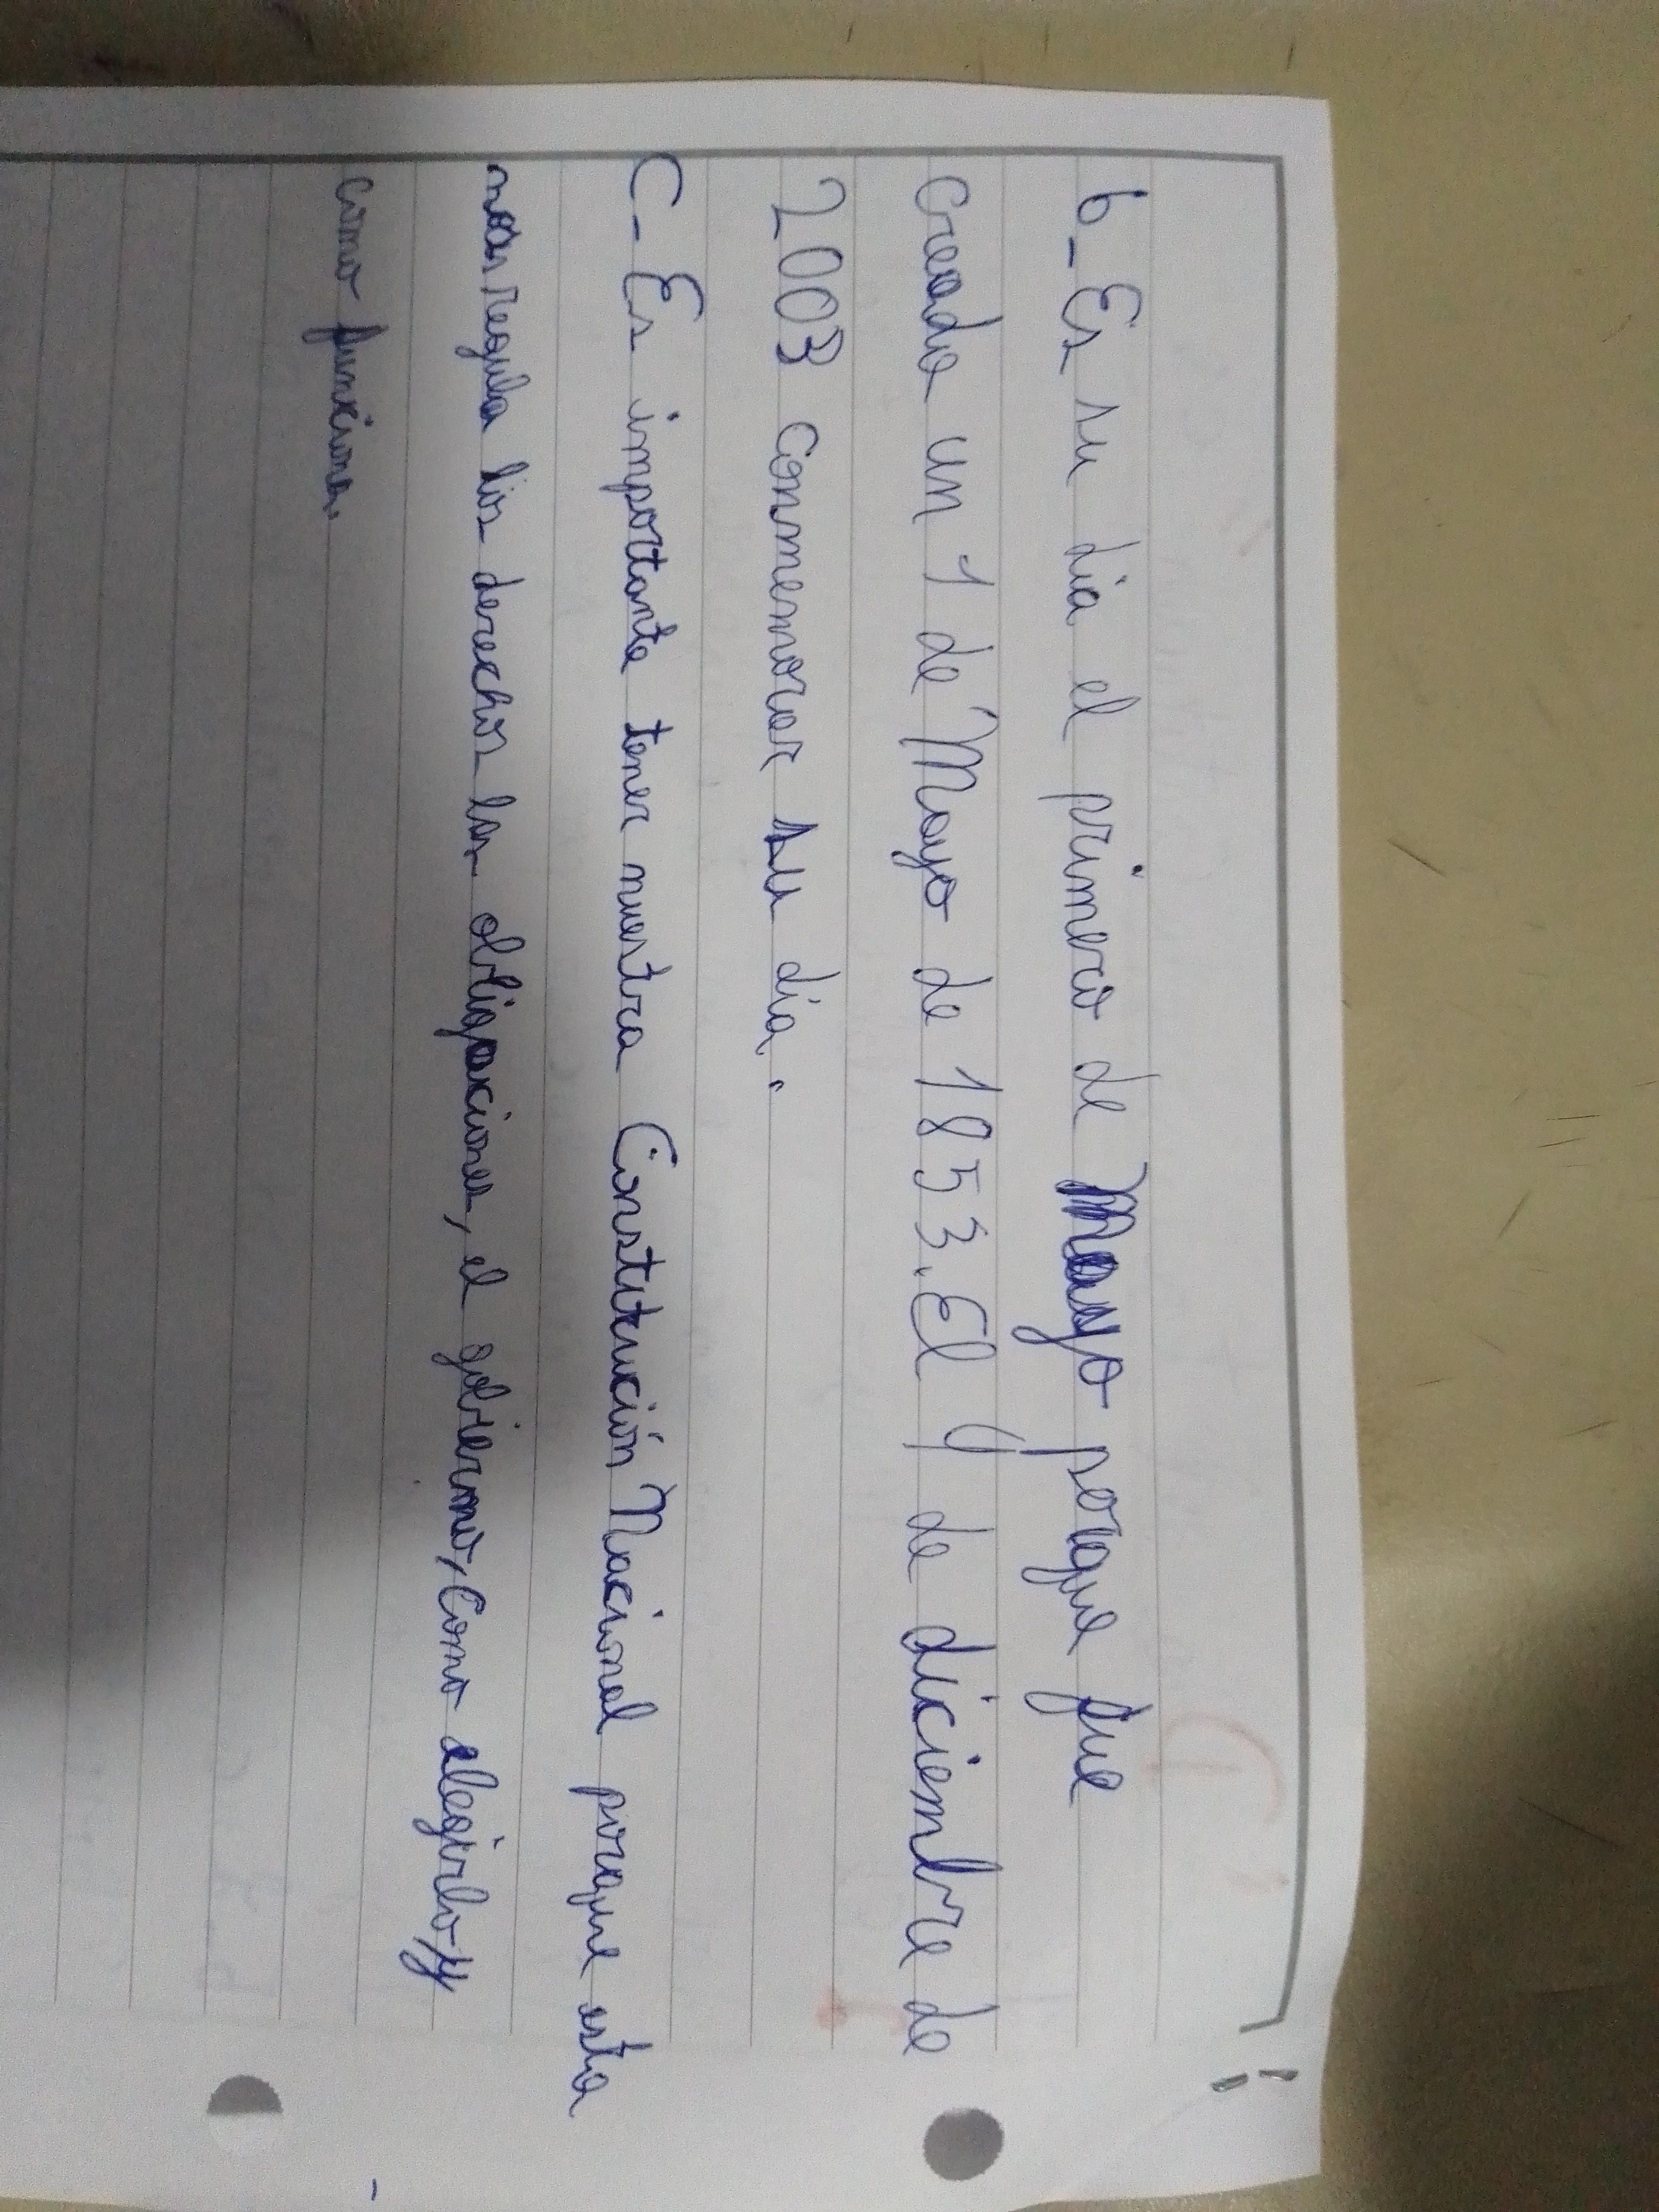 b_ Es su dia el primero de Mayo porque fue
Creada un 1 de Mayo de 1853. El 4 de diciembre de
2003 Conmemorar su día.
C- Es importante tener nuestra Constitución Nacional porque esta
nos regula los derechos las obligaciones, el gobierno, Como elegirlo y
como funciona.